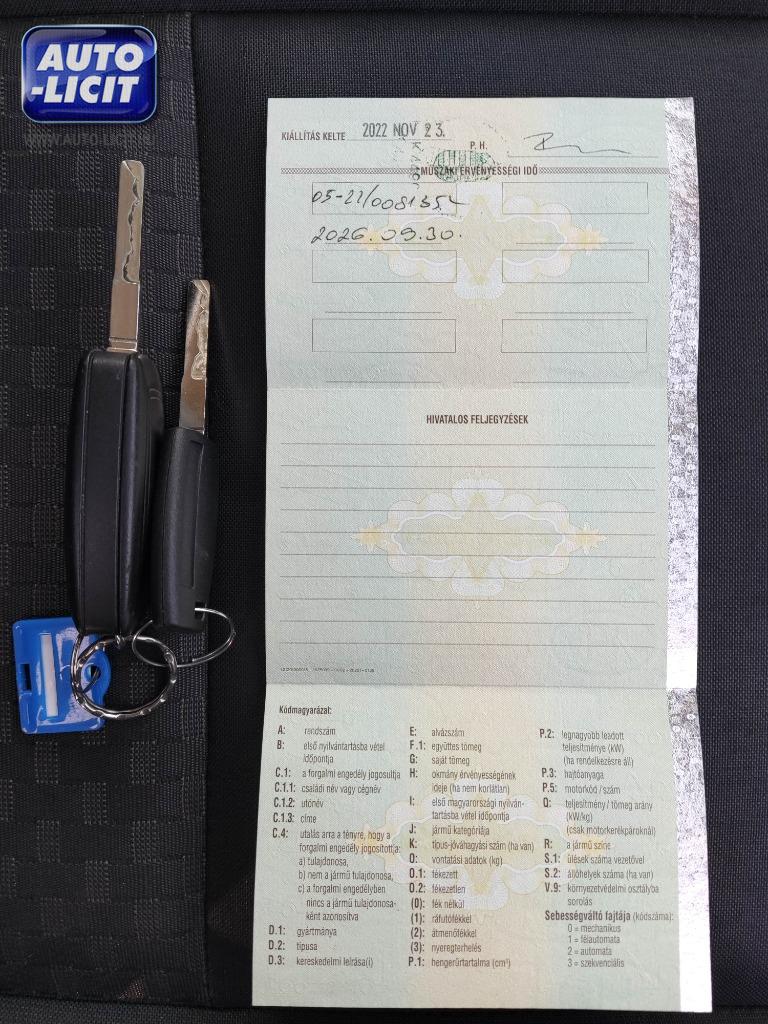 AUTO
-LICIT
WWW.AUTO-LICIT.HU
KIÁLLÍTÁS KELTE 2022 NOV 23.
P. H.
MŰSZAKI ÉRVÉNYESSÉGI IDŐ
05-22/0081354
2026.09.30.
HIVATALOS FELJEGYZÉSEK
Kódmagyarázat:
A: rendszám
B: első nyilvántartásba vétel
időpontja
C.1: a forgalmi engedély jogosultja
C.1.1: családi név vagy cégnév
C.1.2: utónév
C.1.3: címe
C.4: utalás arra a tényre, hogy a
forgalmi engedély jogosítottja:
a) tulajdonosa,
b) nem a jármű tulajdonosa,
c) a forgalmi engedélyben
nincs a jármű tulajdonosa-
ként azonosítva
D.1: gyártmánya
D.2: típusa
D.3: kereskedelmi leírása(i)
E: alvázszám
F.1: együttes tömeg
G: saját tömeg
H: okmány érvényességének
ideje (ha nem korlátlan)
I: első magyarországi nyilván-
tartásba vétel időpontja
J: jármű kategóriája
K: típus-jóváhagyási szám (ha van)
O: vontatási adatok (kg)
O.1: fékezett
O.2: fékezetlen
(0): fék nélkül
(1): ráfutófékkel
(2): átmenőfékkel
(3): nyeregterhelés
P.1: hengerűrtartalma (cm³)
P.2: legnagyobb leadott
teljesítménye (kW)
(ha rendelkezésre áll)
P.3: hajtóanyaga
P.5: motorkód / szám
Q: teljesítmény / tömeg arány
(kW/kg)
(csak motorkerékpároknál)
R: a jármű színe
S.1: ülések száma vezetővel
S.2: állóhelyek száma (ha van)
V.9: környezetvédelmi osztályba
sorolás
Sebességváltó fajtája (kódszáma):
0 = mechanikus
1 = félautomata
2 = automata
3 = szekvenciális